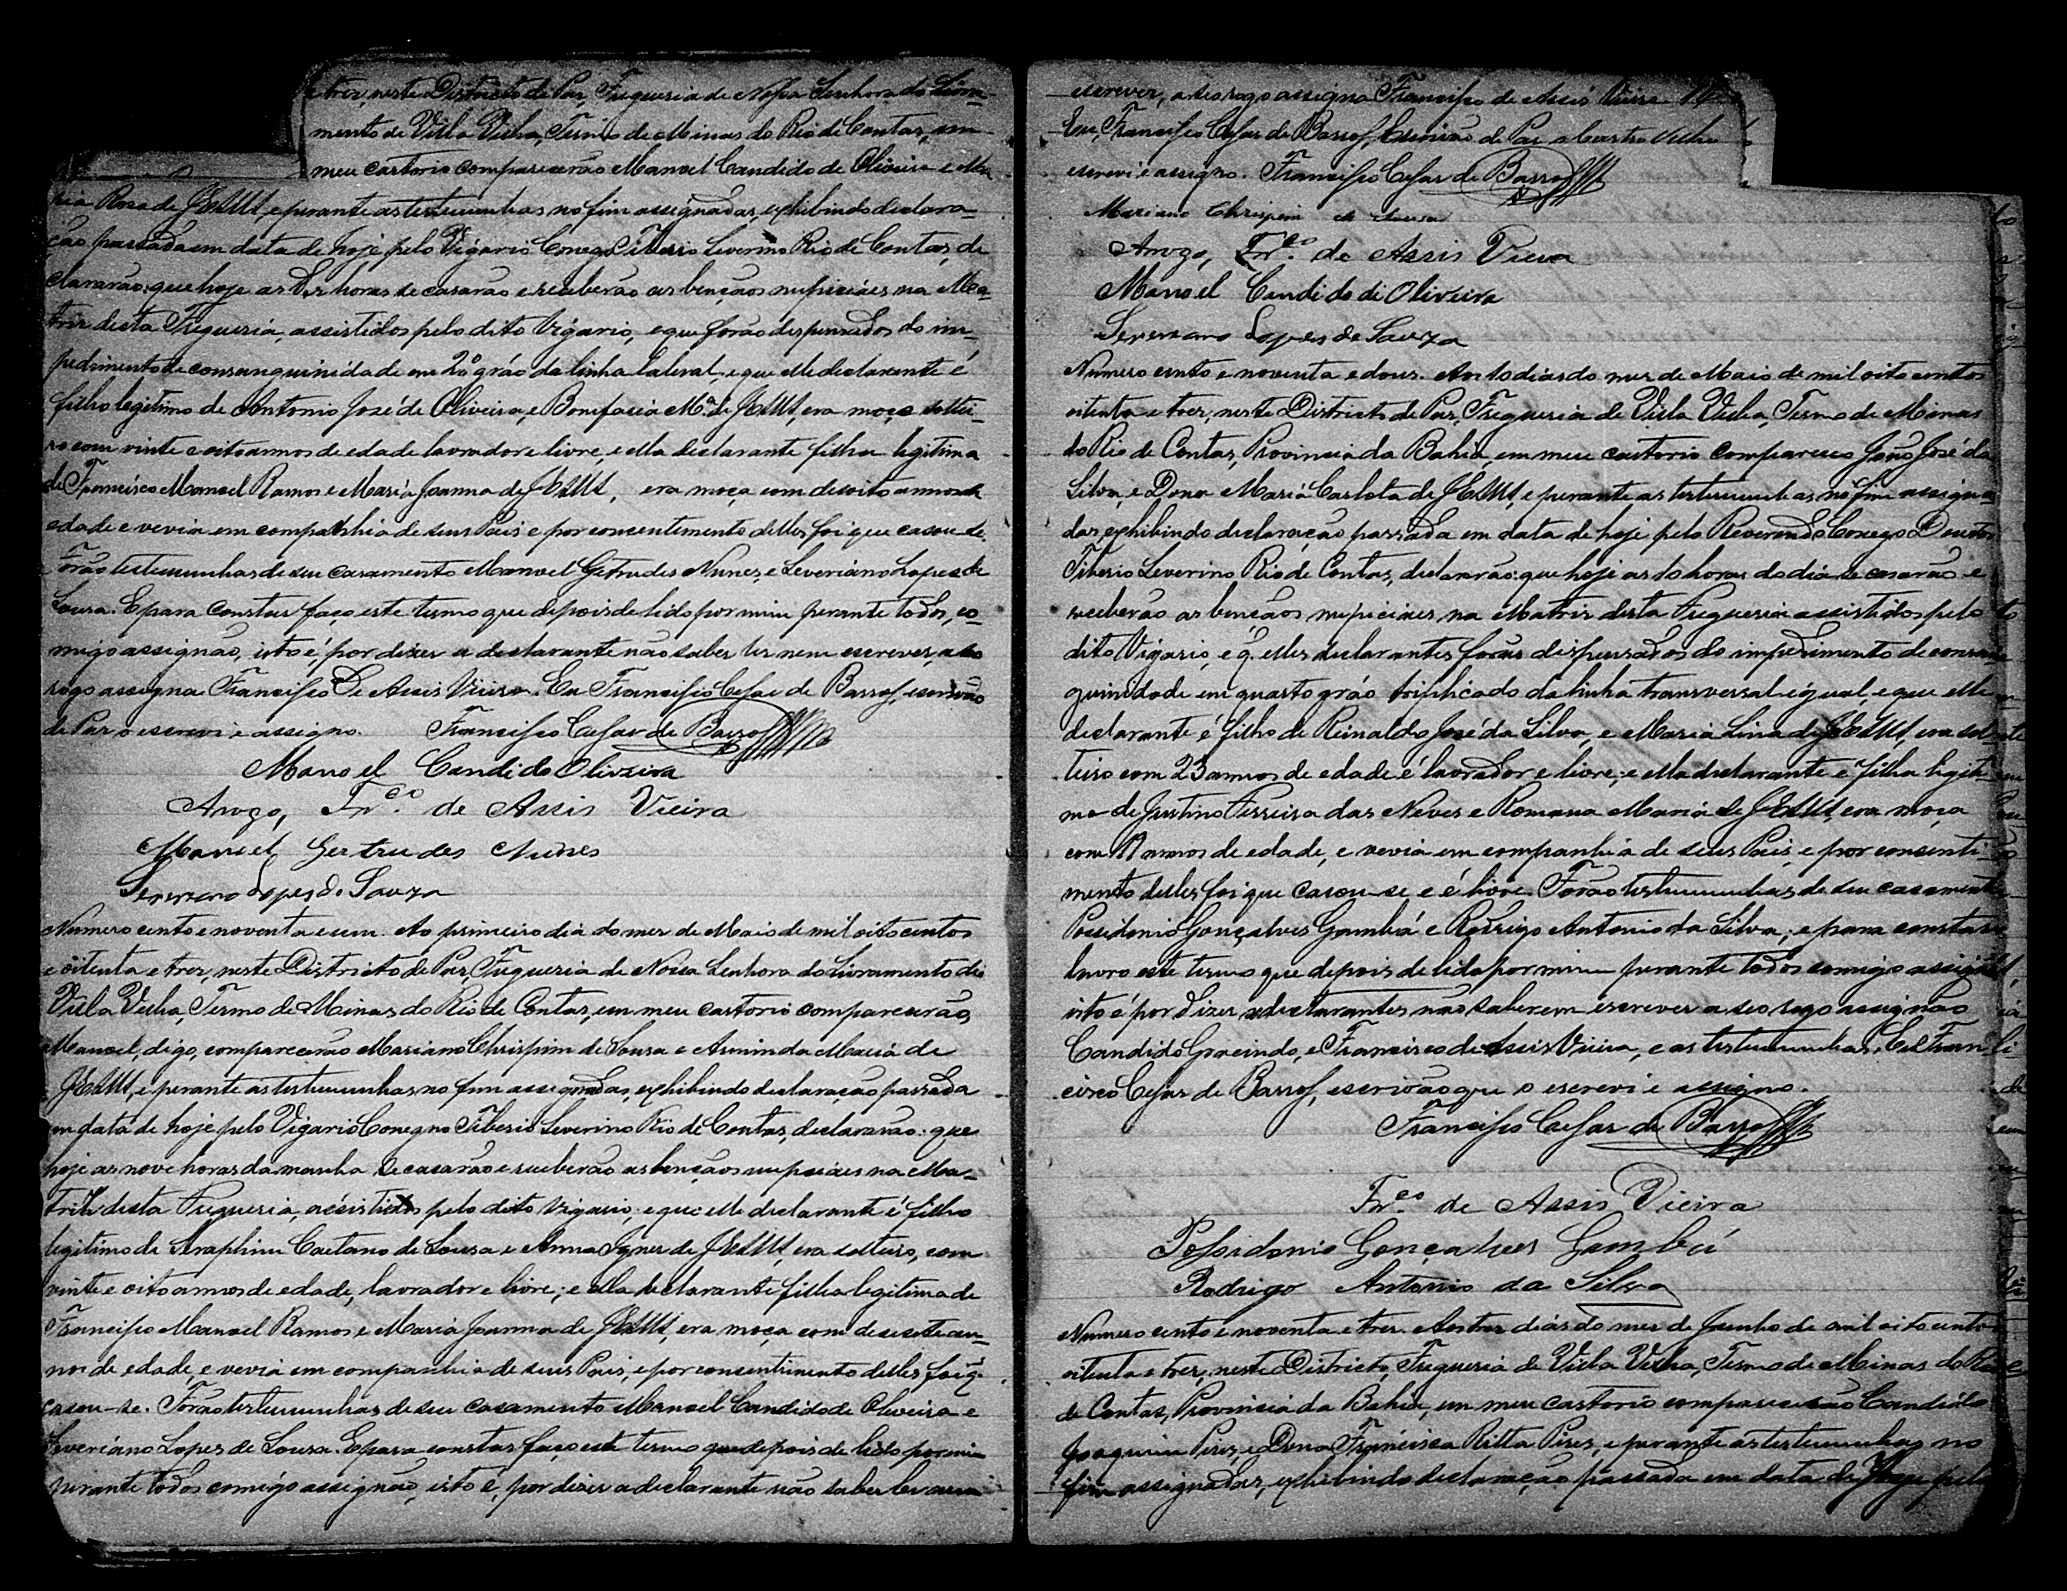 e tres, neste Districto de Paz, Freguesia de Nossa Senhora do Livra-
mento de Villa Velha, Termo de Minas do Rio de Contas, em
meu cartorio comparecerão Manoel Candido de Oliveira e Ma-
ria Rosa de JESUS, e perante as testemunhas no fim assignadas, exhibindo declara-
ção passada em data de hoje, pelo Vigario Conego Tiberio Severino Rio de Contas, de
clararão: que hoje as Dez horas se casarão e receberão as bençãos nupiciáes na Ma-
triz desta Freguesia, assistidos pelo dito Vigario, e que forão dispensados do im-
pedimento de consanguinidade em 2º gráo da linha lateral, e que elle declarante é
filho legitimo de Antonio José de Oliveira, e Bonifacia Mª de JESUS, era moço soltei-
ro com vinte e oito annos de edade lavrador e livre, e ella declarante filha legitima
de Francisco Manoel Ramos e Maria Joanna de JESUS, era moça com desoito annos de
edade e vevia em companhia de seus Pais e por consentimento delles foi que casou-se.
Forão testemunhas de seu casamento Manoel Getrudes Nunes, e Severiano Lopes de
Sousa. E para constar faço este termo que depois de lido por mim perante todos, co-
migo assignão, isto é, por dizer a declarante não saber ler nem escrever, a seo
rogo assigna Francisco De Assis Vieira. Eu Francisco Cesar de Barros, escrivão
de Paz o escrevi e assigno. Francisco Cesar de Barros
Manoel Candido Oliveira
Arogo, Frco. de Assis Vieira
Manoel Gertrudes Nunes
Severiano Lopes de Souza
Numero cento e noventa e um. Ao primeiro dia do mes de Maio de mil oito centos
e oitenta e tres, neste Districto de Paz, Freguesia de Nossa Senhora do Livramento de
Villa Velha, Termo de Minas do Rio de Contas, em meu cartorio comparecerão,
Manoel, digo, comparecerão Mariano Chrispim de Sousa e Arminda Maria de
JESUS, e perante as testemunhas no fim assignadas, exhibindo declaração passada
em data de hoje pelo Vigario Conegno Tiberio Severino Rio de Contas, declararão: que
hoje as nove horas da manha se casarão e receberão as bençãos nupciáes na Ma-
triz desta Freguesia, assistidos pelo dito Vigario, e que elle declarante é filho
legitimo de Seraphim Caetano de Sousa e Anna Ignez de JESUS, era solteiro, com
vinte e oito annos de edade, lavrador e livre; e ella declarante filha legitima de
Francisco Manoel Ramos e Maria Joanna de JESUS, era moça com desesete an-
nos de edade, e vevia em companhia de seus Pais, e por consentimento delles foi q.
casou-se. Forão testemunhas de seu casamento Manoel Candido de Oliveira e
Severiano Lopes de Sousa. E para constar faço este termo que depois de lido por mim
perante todos comigo assignão, isto é, por dizer a declarante não saber ler nem
escrever, a seo rogo assigna Francisco de Assis Vieira.
Eu, Francisco Cesar de Barros, Escrivão de Paz
escrevi e assigno. Francisco Cesar de Barros
Mariano Chrispim de Sousa
Arogo, Frco. de Assis Vieira
Manoel Candido di Oliveira
Severiano Lopes de Souza
Numero cento e noventa e dous. Aos 10 dias do mes de Maio de mil oito centos
oitenta e tres, neste Districto de Paz, Freguesia de Villa Velha, Termo de Minas
do Rio de Contas, Provincia da Bahia, em meu cartorio compareceo João José da
Silva, e Dona Maria Carlota de JESUS, e perante as testemunhas no fim assigna-
das, exhibindo declaração passada em data de hoje pelo Reverendo Conego Doutor
Tiberio Severino Rio de Contas, declararão: que hoje as 10 horas do dia se casarão e
receberão as bençãos nupiciaes na Matriz desta Freguesia assistidos pelo
dito Vigario, e q. elles declarantes forão dispensados do impedimento de consan-
guinidade em quarto gráo triplicado da linha transversal igual, e que elle
declarante é filho de Reinaldo José da Silva, e Maria Lina de JESUS, era sol-
teiro com 23 annos de edade é lavrador e livre; e ella declarante é filha legiti-
ma de Justino Ferreira das Neves e Romana Maria de JESUS, era moça
com 17 annos de edade, e vevia em companhia de seus Pais, e por consenti-
mento delles foi que casou-se, e é livre. Forão testemunhas de seu casamento
Possidonio Gonçalves Gambá e Rodrigo Antonio da Silva; e para constar
lavro este termo que depois de lido por mim perante todos comigo assignão,
isto é por dizer os declarantes não saberem escrever a seo rogo assignão
Candido Gracindo, e Francisco de Assis Vieira, e as testemunhas. Eu Fran-
cisco Cesar de Barros, escrivão que o escrevi e assigno.
Francisco Cesar de Barros
Frco. de Assis Vieira
Possidonio Gonçalves Gambá
Rodrigo Antonio da Silva
Numero cento e noventa e tres. Aos tres dias do mes de Junho de mil oito centos
oitenta e tres, neste Districto, Freguesia de Villa Velha, Termo de Minas do Rio
de Contas, Provincia da Bahia, em meu cartorio comparecerão Candido
Joaquim Pires, e Dona Francisca Ritta Pires, e perante as testemunhas no
fim assignadas, exhibindo declaração passada em data de Hoje pelo